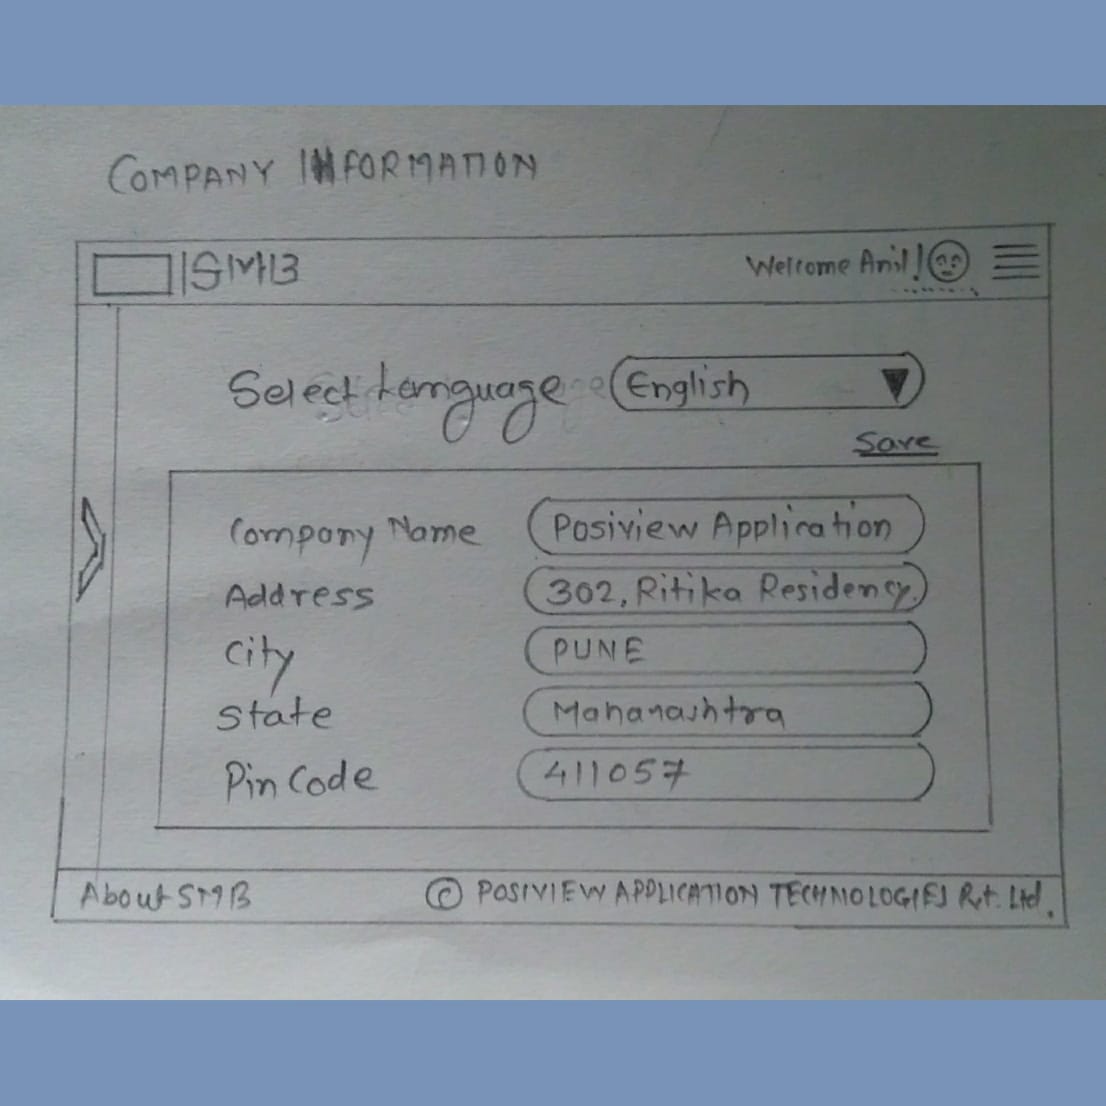 COMPANY INFORMATION
SMB Welcome Anil!
Select Language English
Save
Company Name Posiview Application
Address 302, Ritika Residency.
City PUNE
State Maharashtra
Pin Code 411057
About SMB © POSIVIEW APPLICATION TECHNOLOGIES Pvt. Ltd.